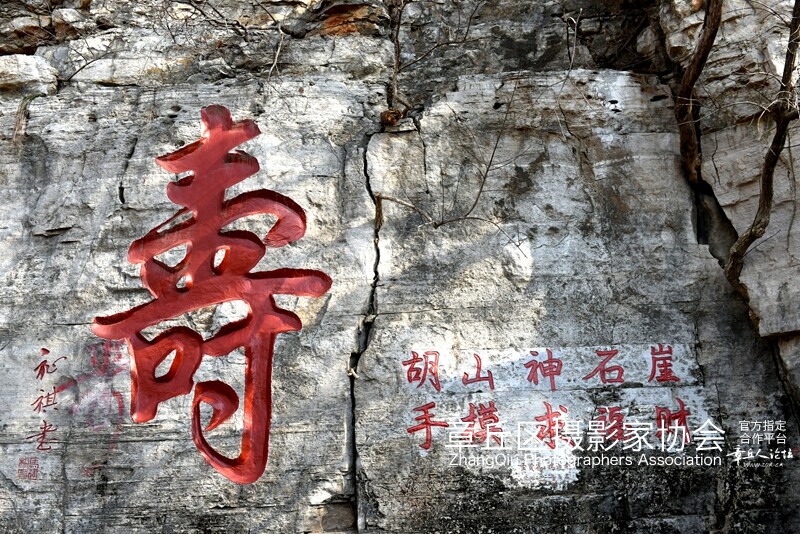 壽
祺書
胡山神石崖
手摸求
章丘区摄影家协会
ZhangQiu Photographers Association
官方指定
合作平台
章丘人论坛